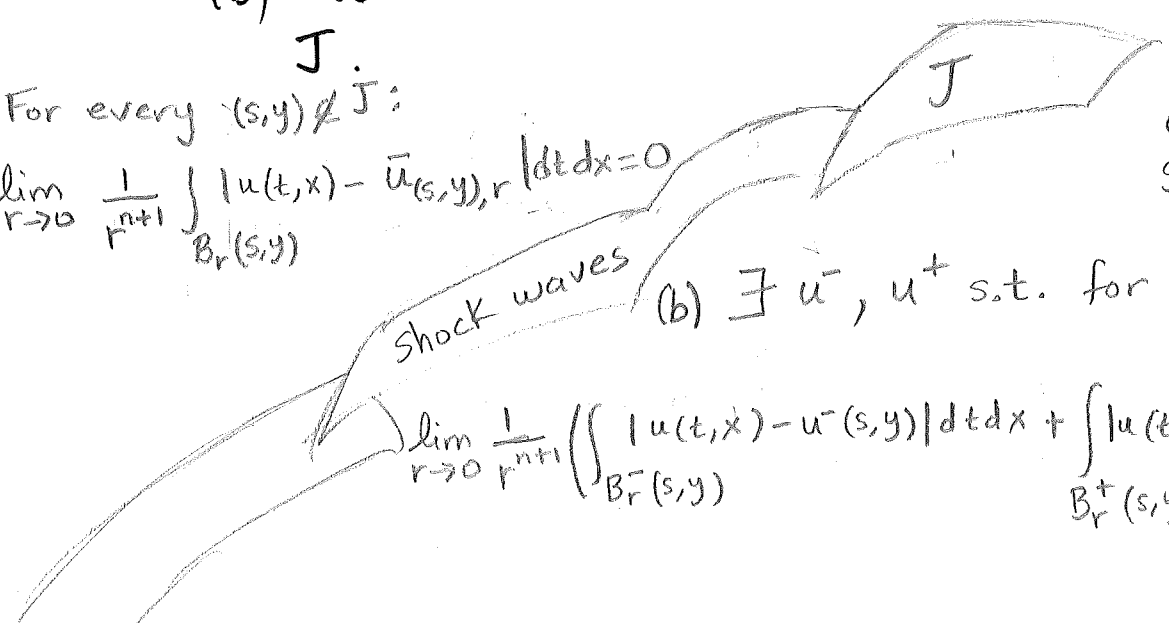 J.
For every (s,y) ∉ J:
lim r→0 1/r^{n+1} ∫_{B_r(s,y)} |u(t,x) - ū_{(s,y),r}| dt dx = 0
J
shock waves
(b) ∃ u⁻, u⁺ s.t. for
lim r→0 1/r^{n+1} (∫_{B_r^-(s,y)} |u(t,x) - u⁻(s,y)| dt dx + ∫_{B_r^+(s,y} |u(t